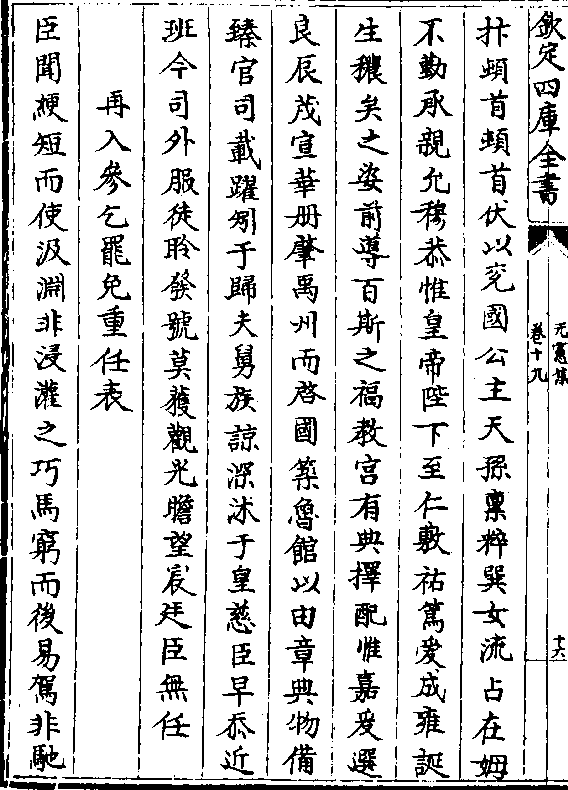 欽定四庫全書
元憲集
卷十九
十六
抃頓首頓首伏以兖國公主天孫稟粹巽女流占在姆
不勤承親允穆恭惟皇帝陛下至仁敷祐篤愛成雍誕
生穠矣之姿前導百斯之福教宮有典擇配惟嘉爰選
良辰茂宣華册肇禹州而啓國築魯館以由章典物備
臻官司載躍矧于歸夫舅族諒深沐于皇慈臣早忝近
班今司外服徒聆發號莫獲觀光瞻望宸廷臣無任
再入參乞罷免重任表
臣聞綆短而使汲淵非浸灌之巧馬窮而後易駕非馳